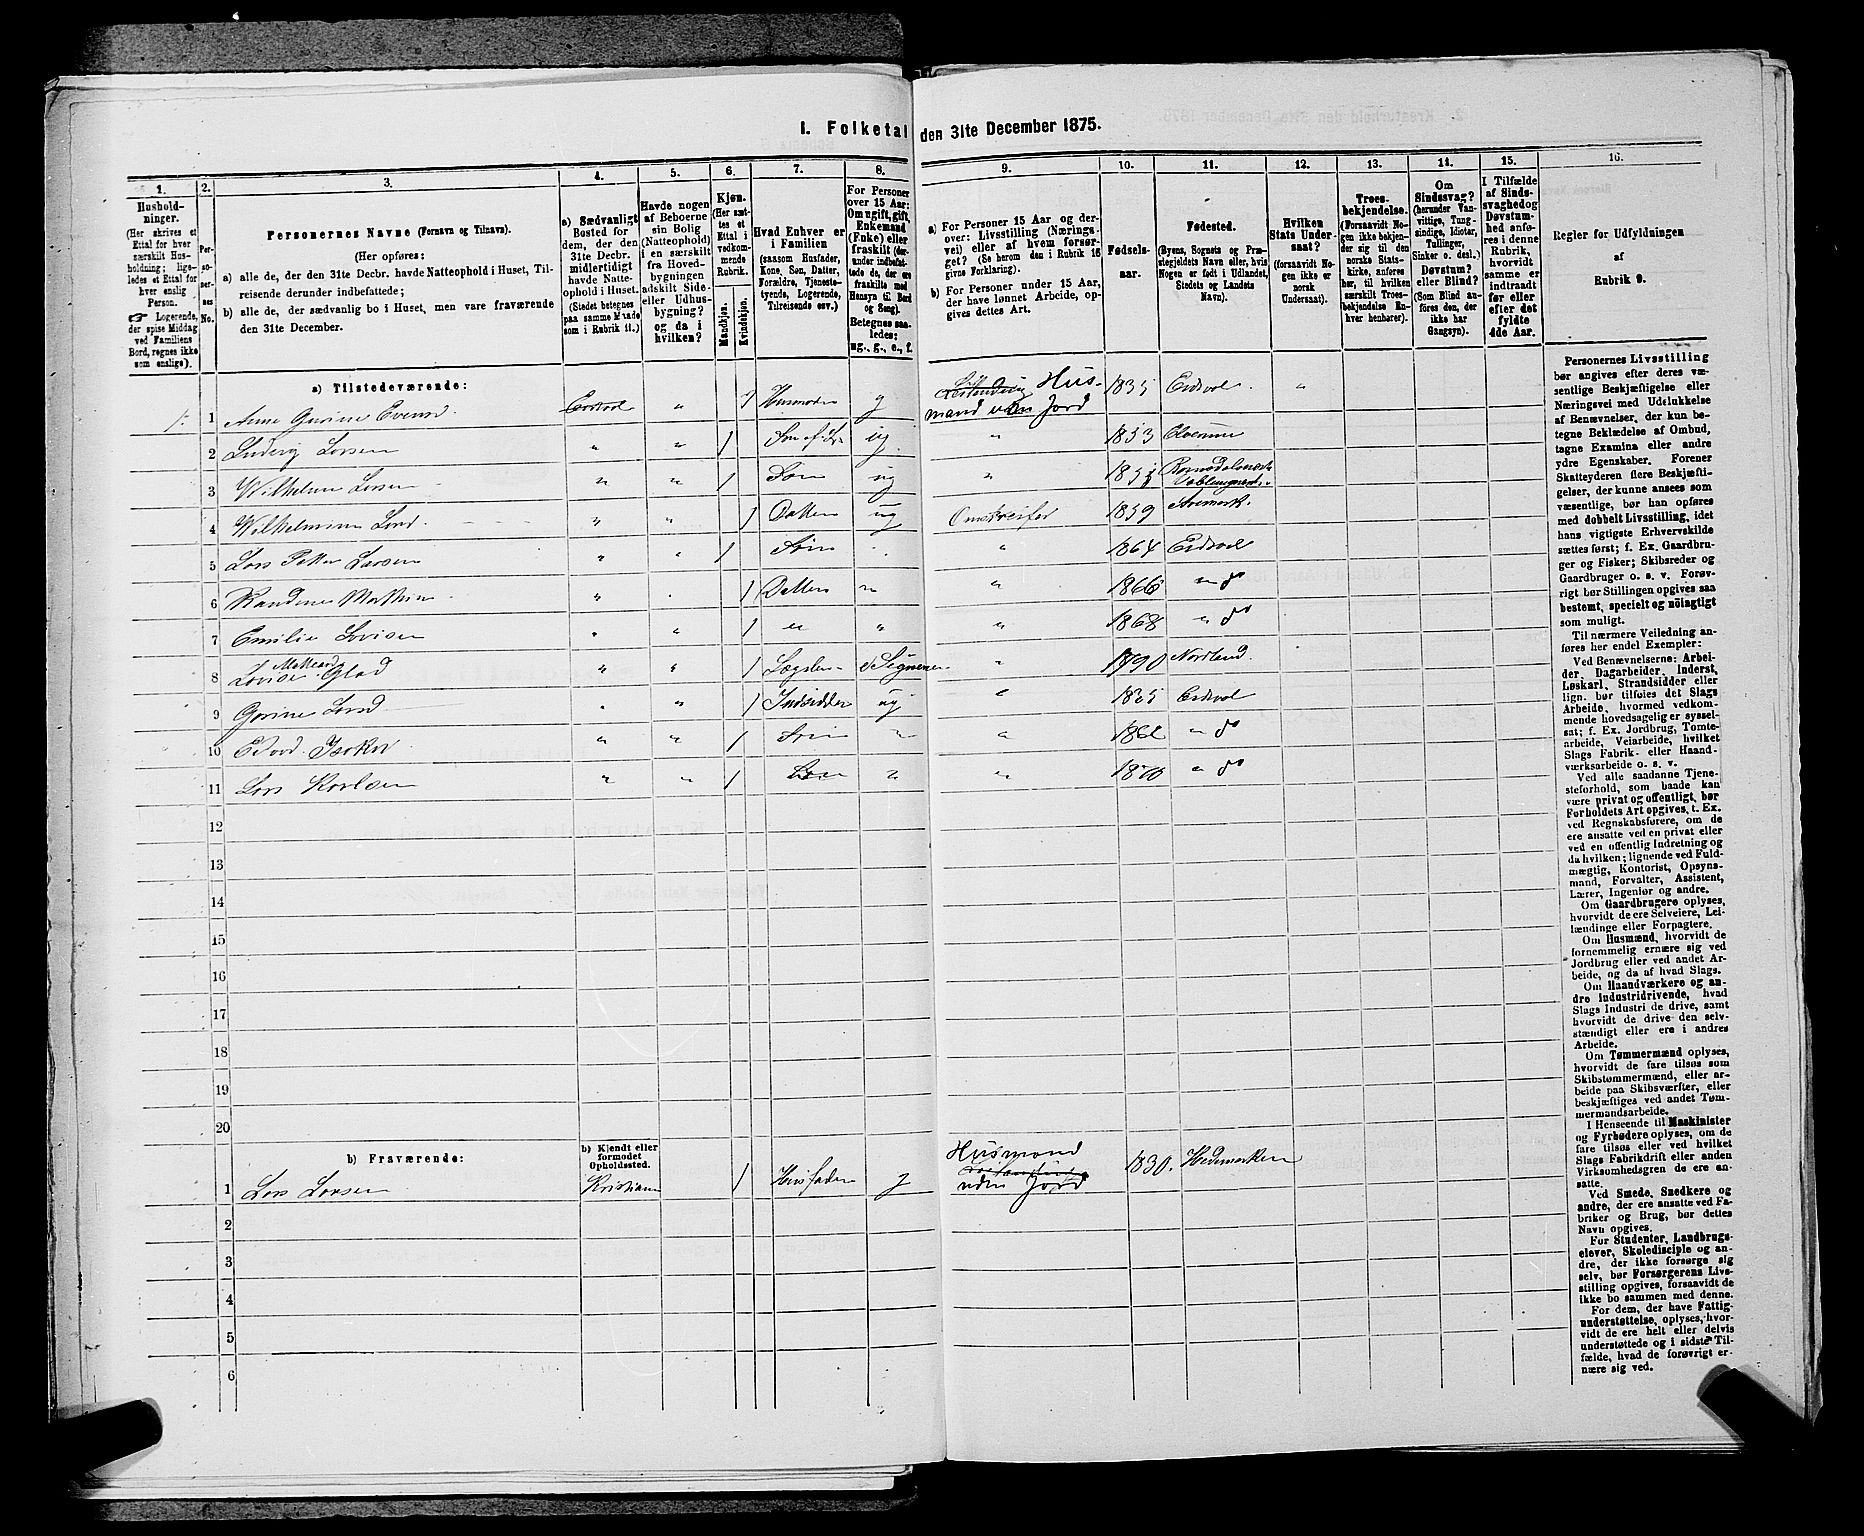 I. Folketal den 31te December 1875.
1.
Husholdninger.
(Her skrives et
Ettal for hver
særskilt Husholdning; ligeledes
et Ettal for
hver enslig
Person.
☞ Logerende,
der spise Middag
ved Familiens
Bord, regnes ikke
som enslige).
2.
Personernes No.
3.
Personernes Navne (Fornavn og Tilnavn).
(Her opføres:
a) alle de, der den 31te Decbr. havde Natteophold i Huset, Tilreisende derunder indbefattede;
b) alle de, der sædvanlig bo i Huset, men vare fraværende
den 31te December.
4.
a) Sædvanligt
Bosted for
dem, der den
31te Decbr.
midlertidigt
havde Natteophold i Huset.
(Stedet betegnes
paa samme Maade
som i Rubrik 11.)
5.
Havde nogen
af Beboerne
sin Bolig
(Natteophold)
i en særskilt
fra Hovedbygningen
adskilt Side-
eller Udhusbygning?
og da i
hvilken?
6.
Kjøn.
(Her sættes et
Ettal i
vedkommende
Rubrik.
Mandkjøn.
Kvindekjøn.
7.
Hvad Enhver er
i Familien
(saasom Husfader,
Kone, Søn, Datter,
Forældre, Tjenestetyende, Logerende,
Tilreisende osv.)
8.
For Personer
over 15 Aar:
Om ugift, gift,
Enkemand
(Enke) eller
fraskilt
Betegnes saaledes:
ug., g., e., f.
9.
a) For Personer 15 Aar og derover: Livsstilling (Næringsvei) eller af hvem forsørget? (Se herom den i Rubrik 16
givne Forklaring).
b) For Personer under 15 Aar,
der have lønnet Arbeide, opgives dettes Art.
10.
Fødselsaar.
11.
Fødested.
(Byens, Sognets og Præstegjeldets Navn eller, hvis
Nogen er født i Udlandet,
Stedets og Landets
Navn).
12.
Hvilken
Stats Undersaat?
(forsaavidt Nogen ikke er
norsk
Undersaat).
13.
Troesbekjendelse.
(Forsaavidt Nogen ikke bekjender sig til den
norske Statskirke, anføres
her, til hvilken
særskilt Troesbekjendelse Enhver henhører).
14.
Om
Sindssvag?
(herunder Vanvittige, Tungsindige, Idioter,
Tullinger,
Sinker o. desl.)
Døvstum?
eller Blind?
(Som Blind anføres den, der
ikke har
Gangsyn).
15.
I Tilfælde
af Sindssvaghed og
Døvstumhed anføres i denne
Rubrik,
hvorvidt
samme er
indtraadt
før eller
efter det
fyldte
4de Aar.
16.
Regler for Udfyldningen
af
Rubrik 9.
a) Tilstedeværende:
1 Anne Gurine Evensd. Eidsvol " 1 Husmoder g Husmand uden Jord 1835 Eidsvol "
2 Ludvig Larsen " " 1 ug " 1853 Elverum
3 Wilhelm Larsen " " 1 Søn ug "
4 Wilhelmine Larsd. " " 1 Datter ug 1859 Aremark
5 Lars Petter Larsen " " 1 Søn " 1864 Eidsvol
6 " 1 Datter " " 1866 " do
7 Emilie Lovise " " 1 " " " 1868 " do
8 Lovise Glad " " 1 Nordland
9 Gurine Larsd " " 1 Inderst ug " 1835 Eidsvol
10 " " 1 Søn " " " do
11 Lars Karlsen " " 1 " " 1870 " do
12
13
14
15
16
17
18
19
20
b) Fraværende:
b) Kjendt eller
formodet
Opholdssted.
1 Lars Larsen Kristiania 1 Husfader g Husmand uden Jord 1830. Hedemarken
2
3
4
5
6
Personernes Livsstilling
bør angives efter deres væsentlige Beskjæftigelse eller
Næringsvei med Udelukkelse
af Benævnelser, der kun betegne Beklædelse af Ombud,
tagne Examina eller andre
ydre Egenskaber. Forener
Skatteyderen flere Beskjæftigelser, der kunne ansees som
væsentlige, bør han opføres
med dobbelt Livsstilling, idet
hans vigtigste Erhvervskilde
sættes først; f. Ex. Gaardbruger og Fisker; Skibsreder og
Gaardbruger o. s. v. Forøvrigt bør Stillingen opgives saa
bestemt, specielt og nøiagtigt
som muligt.
Til nærmere Veiledning anføres her endel Exempler:
Ved Benævnelserne: Arbeider, Dagarbeider, Inderst,
Løskarl, Strandsidder eller
lign. bør tilføies det Slags
Arbeide, hvormed vedkommende hovedsagelig er sysselsat; f. Ex. Jordbrug, Tomtearbeide, Veiarbeide, hvilket
Slags Fabrik- eller Haandværksarbeide o. s. v.
Ved alle saadanne Tjenesteforhold, som baade kan
være privat og offentligt, bør
Forholdets Art opgives, t. Ex.
ved Regnskabsførere, om de
ere ansatte ved en privat eller
ved en offentlig Indretning og
da hvilken; lignende ved Fuldmægtig, Kontorist, Opsynsmand, Forvalter, Assistent,
Lærer, Ingeniør og andre.
Om Gaardbrugere oplyses,
hvorvidt de ere Selveiere, Leilændinge eller Forpagtere.
Om Husmænd, hvorvidt de
fornemmelig ernære sig ved
Jordbrug eller ved andet Arbeide, og da af hvad Slags.
Om Haandværkere og andre Industridrivende, hvad
Slags Industri de drive, samt
hvorvidt de drive den selvstændigt eller ere i andres
Arbeide.
Om Tømmermænd oplyses,
hvorvidt de fare tilsøs som
Skibstømmermænd, eller arbeide paa Skibsværfter, eller
beskjæftiges ved andet Tømmermandsarbeide.
I Henseende til Maskinister
og Fyrbødere oplyses, om de
fare tilsøs eller ved hvilket
Slags Fabrikdrift eller anden
Virksomhedsgren de ere ansatte.
Ved Smede, Snedkere og
andre, der ere ansatte ved Fabriker og Brug, bør dettes
Navn opgives.
For Studenter, Landbrugselever, Skoledisciple og andre, der ikke forsørge sig
selv, bør Forsørgerens Livsstilling opgives, forsaavidt de
ikke bo sammen med denne.
For dem, der have Fattigunderstøttelse, oplyses, hvorvidt de ere helt eller delvis
understøttede og i sidste Tilfælde, hvad de forøvrigt ernære sig ved.